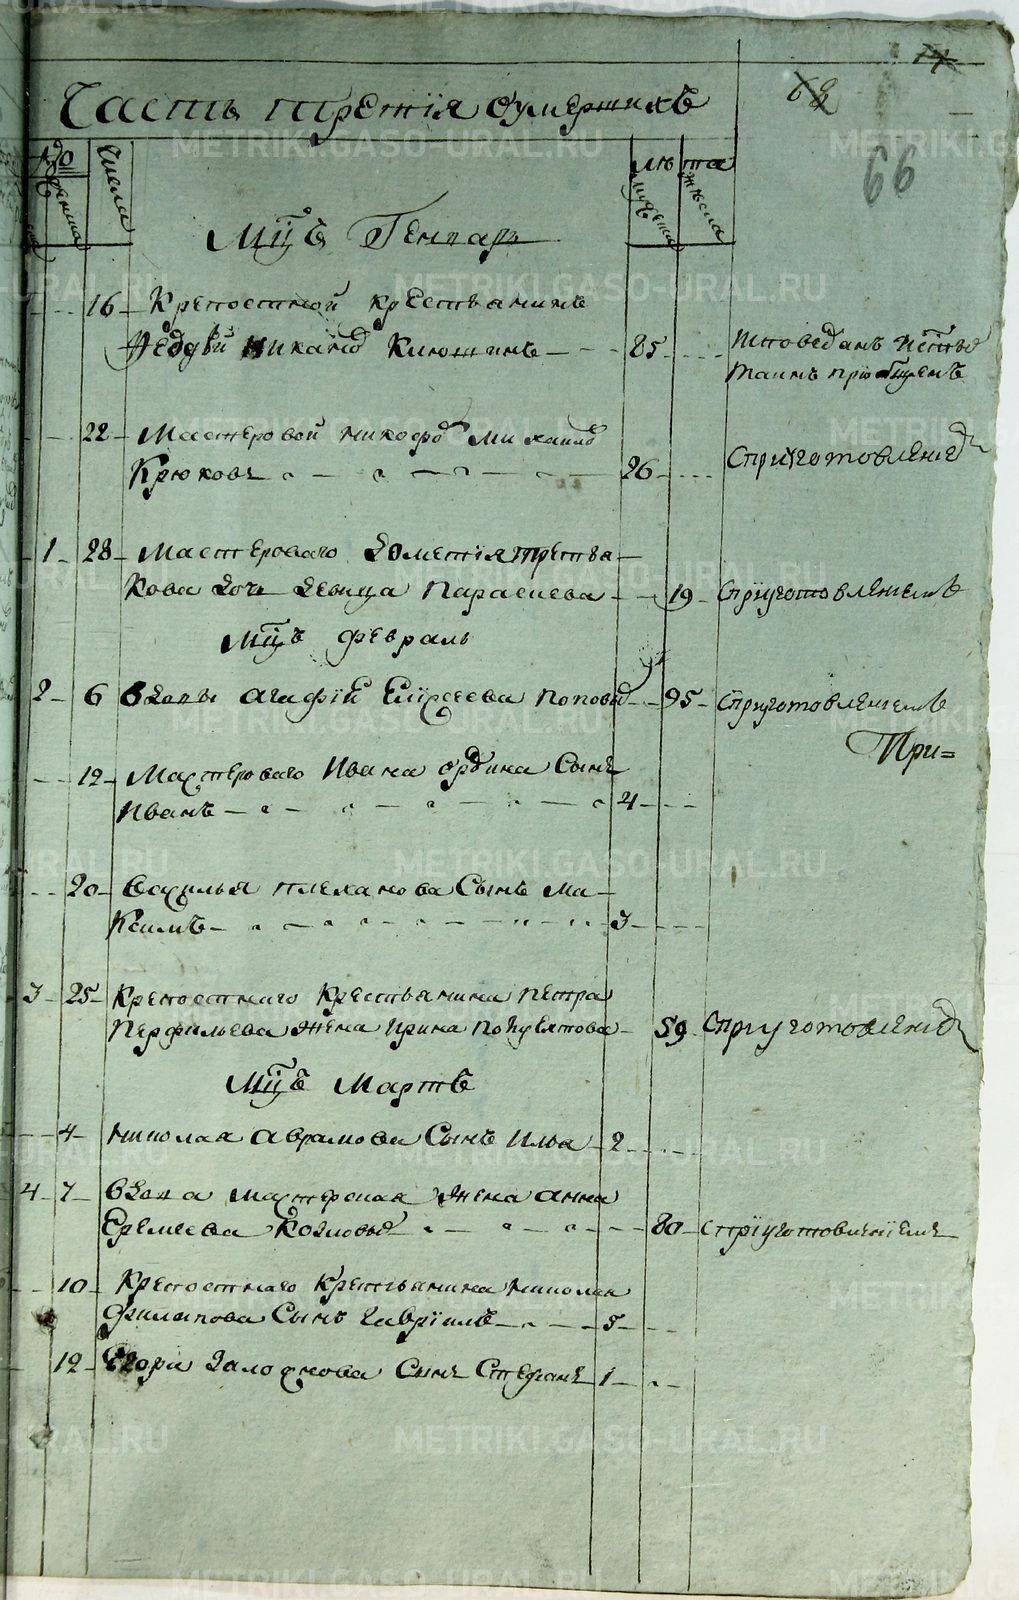 14
Часть третiя оумершихъ
68
66
No
Числа
лѣта
мужеска
женска
женска
Мцъ Генварь
16 Крепостной крестьянинъ
Федоръ Никано Клюшинъ 85 Исповеданъ и
таинъ приобщенъ
22 Мастеровой никифо михаило
Крюковъ 26 Сприуготовленiе
1 28 Мастероваго третья
кова дочь девица Парасковa 19 Сприуготовленiемъ
Мцъ февраль
2 6 вдовы агафiи Елисеева попово 95 Сприуготовленiемъ
При=
12 Мастероваго Ивана ордина Сынъ
Иванъ 4
20 Василья плеханова Сынъ Ма
Ксимъ 3
3 25 Крепостнаго Крестьянина петра
Перфильева жена ирина 59 Сприуготовленiе
Мцъ Мартъ
4 николая аврамова Сынъ Илья 2
4 7 вдова мастерская жена анна
Еремеева Козлова 80 сприуготовленiемъ
10 Крепостнаго Крестьянина николая
филипова Сынъ гаврiилъ 5
12 Егора Сынъ Стефанъ 1
METRIKI.GASO-URAL.RU